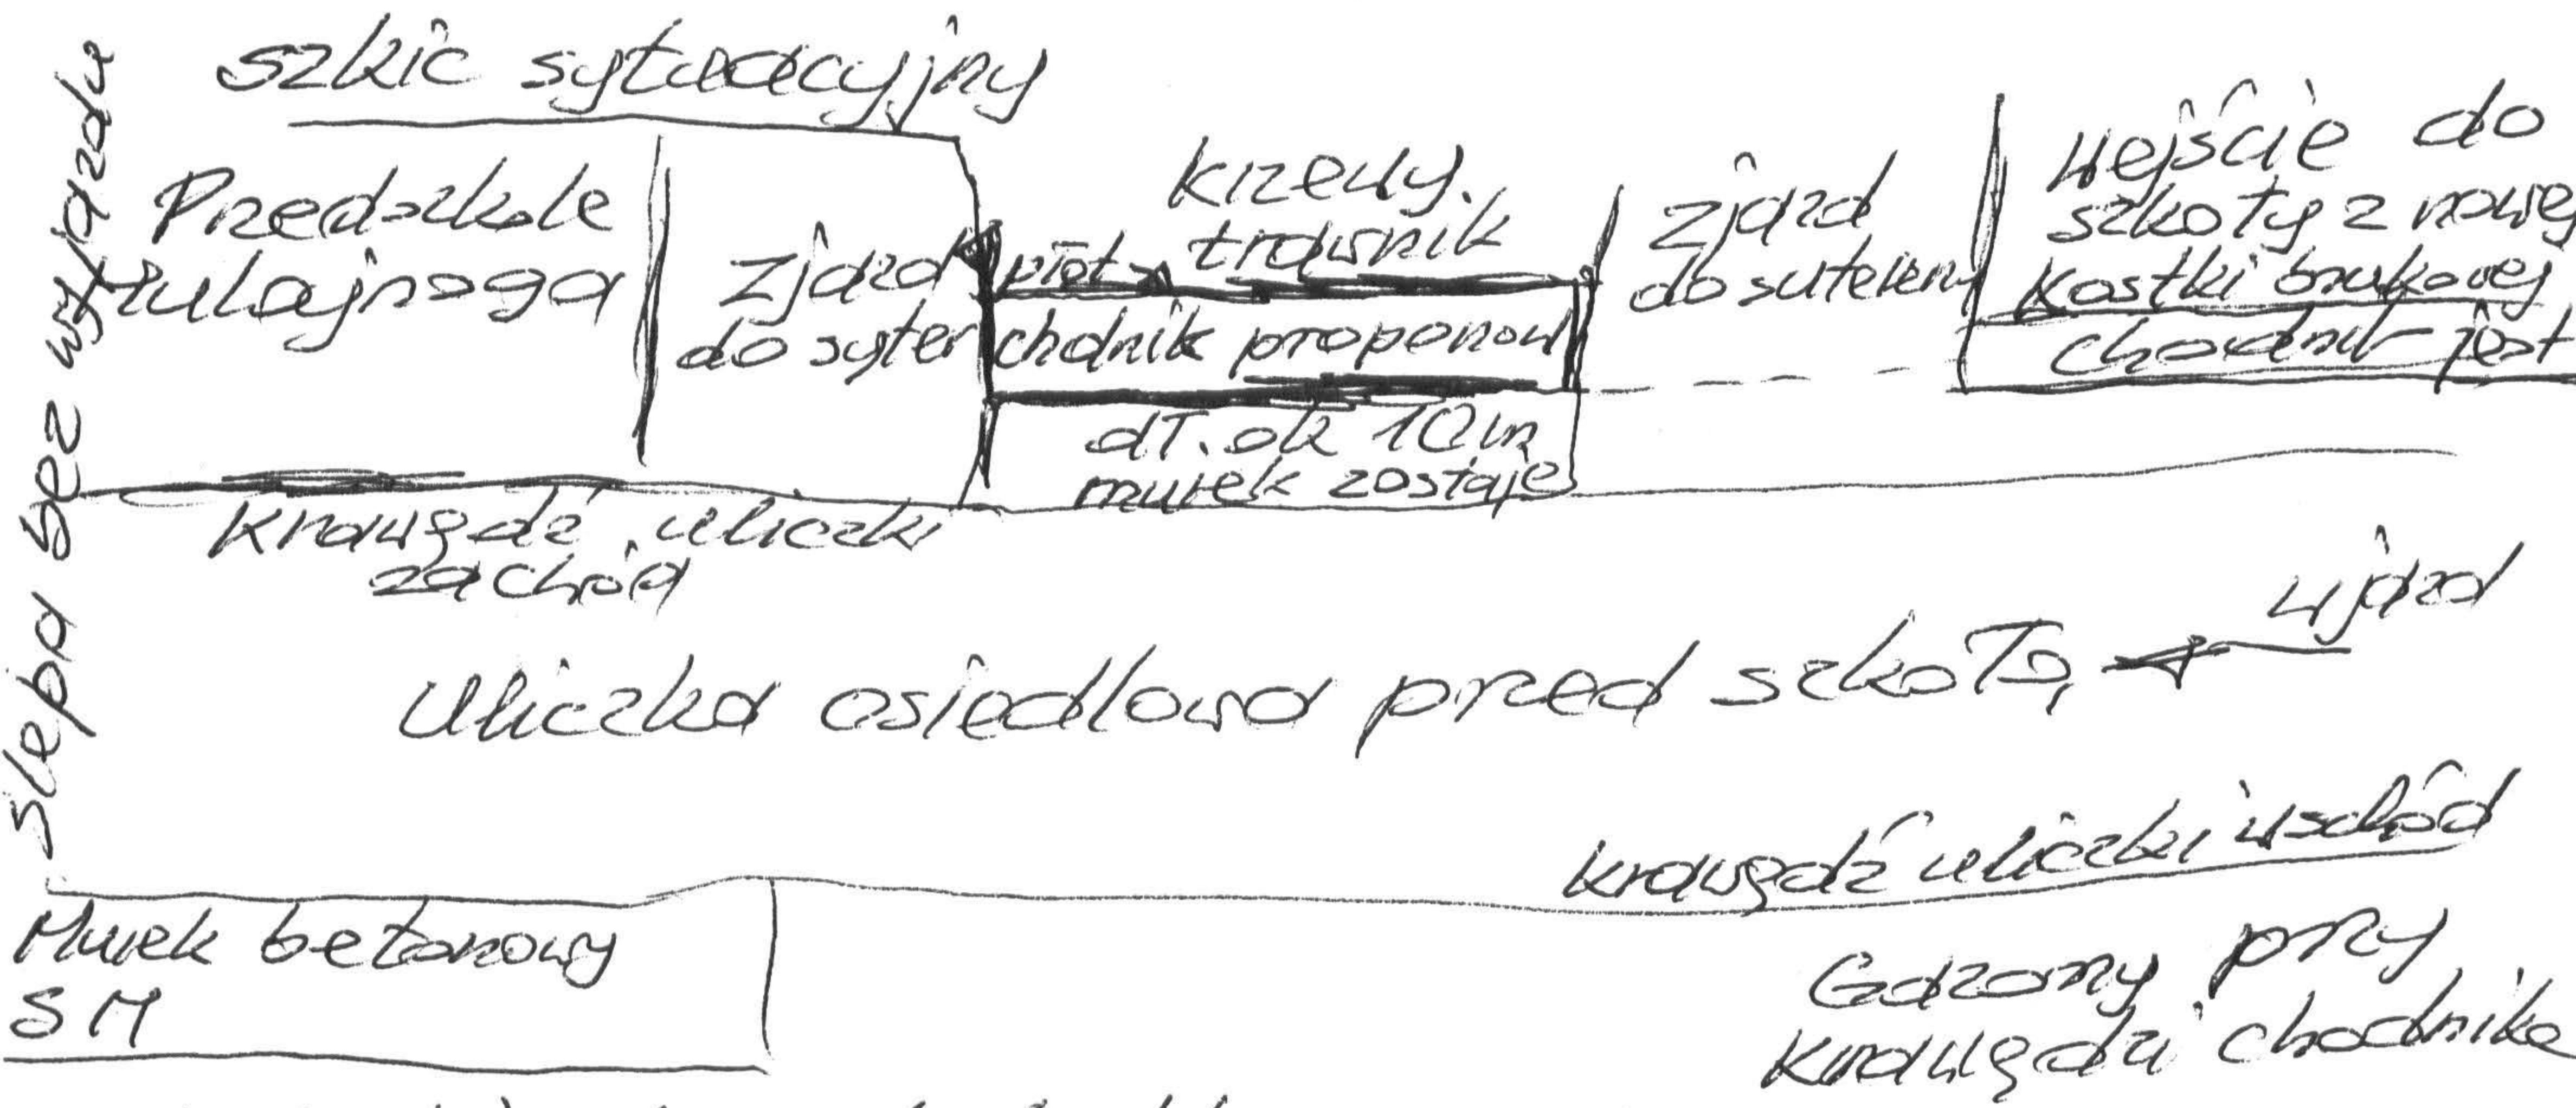 szkic sytuacyjny
ślepa bez wyjazdu
Przedszkole
Hulajnoga
zjazd
do suter
krzewy.
płot trawnik
chodnik proponow
dł. ok 10 m
murek zostaje
zjazd
do sutereny
wejście do
szkoły z nowej
kostki brukowej
chodnik jest
krawędź uliczki
zachód
uliczka osiedlowa przed szkołą
wjazd
krawędź uliczki wschód
Murek betonowy
SM
Gazony przy
krawędzi chodnika